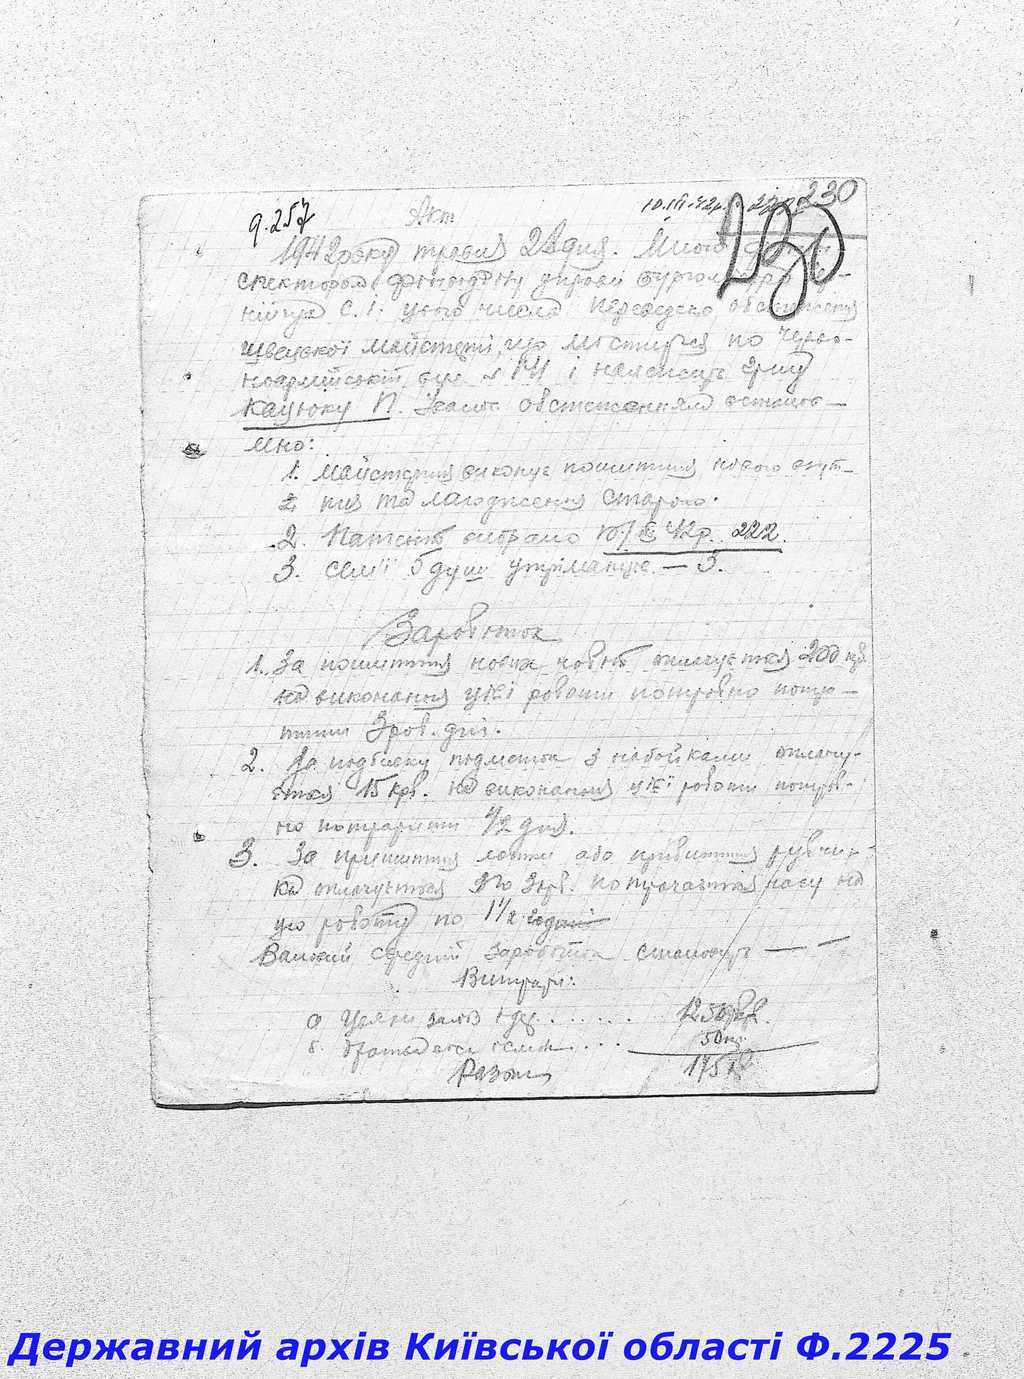 230
10.III.42р. 222
9.257
Акт
230
1942 року травня 22 дня. Мною
спектором фінвідділу управи бургомістра
С. І. цього числа переведено обстеження
шевської майстерні, що міститься по Черво-
ноармійській вул. № 141 і належить гр-ну
Кацюку П. Іваном обстеженням встанов-
лено:
1. Майстерня виконує пошиття нового взут-
тя та лагодження старого.
2. Патент вибрано 10/III 42р. 222.
3. Сем'ї 5 душ утримання — 5.
Заробіток
1. За пошиття нових чобіт оплачується 200 крб.
на виконання цієї роботи потрібно потра-
тити 3 роб. дні.
2. За подбивку подметок з набойками оплачу-
ється 15 крб. на виконання цієї роботи потріб-
но потратити 1/2 дня.
3. За пришиття латки або прибиття рубчи-
ка оплачується 3 крб. потрачається часу на
цю роботу по 1 1/2 годині
середній заробіток становить —
Витрати:
а) 125 крб.
б. 50 кр.
Разом 175 кр
Державний архів Київської області Ф.2225